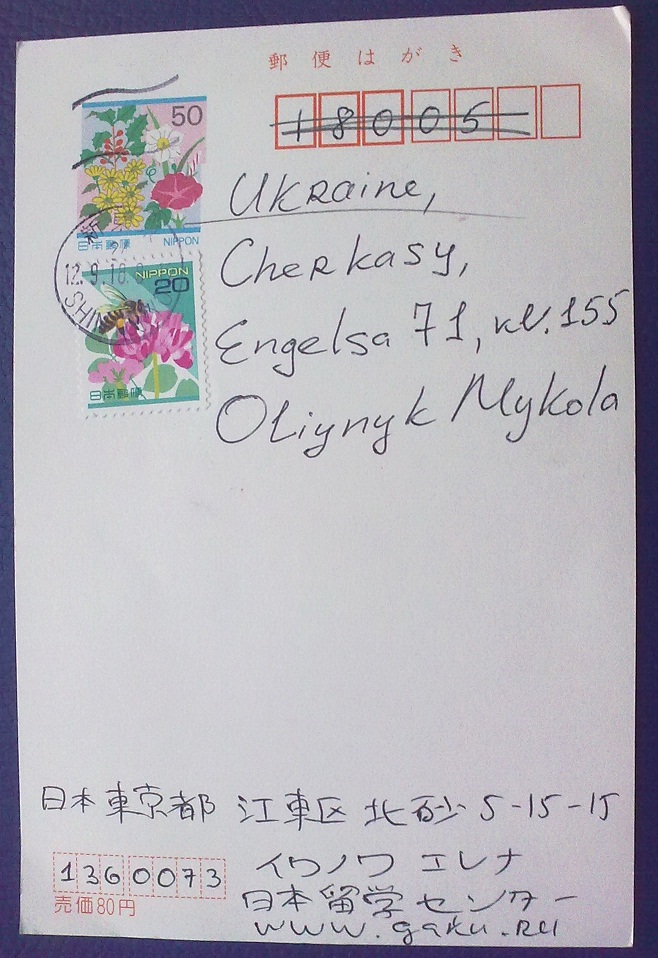 郵便はがき
18005
50
日本郵便 NIPPON
12.9.18
NIPPON
20
日本郵便
Ukraine,
Cherkasy,
Engelsa 71, кв. 155
Oliynyk Mykola
日本東京都 江東区 北砂 5-15-15
1360073
イワノワ エレナ
日本留学センター
売価80円
www.gaku.ru